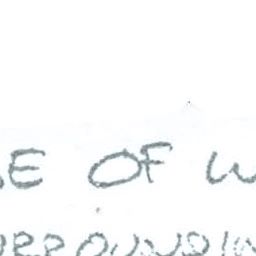 E OF W
URROUNDIN